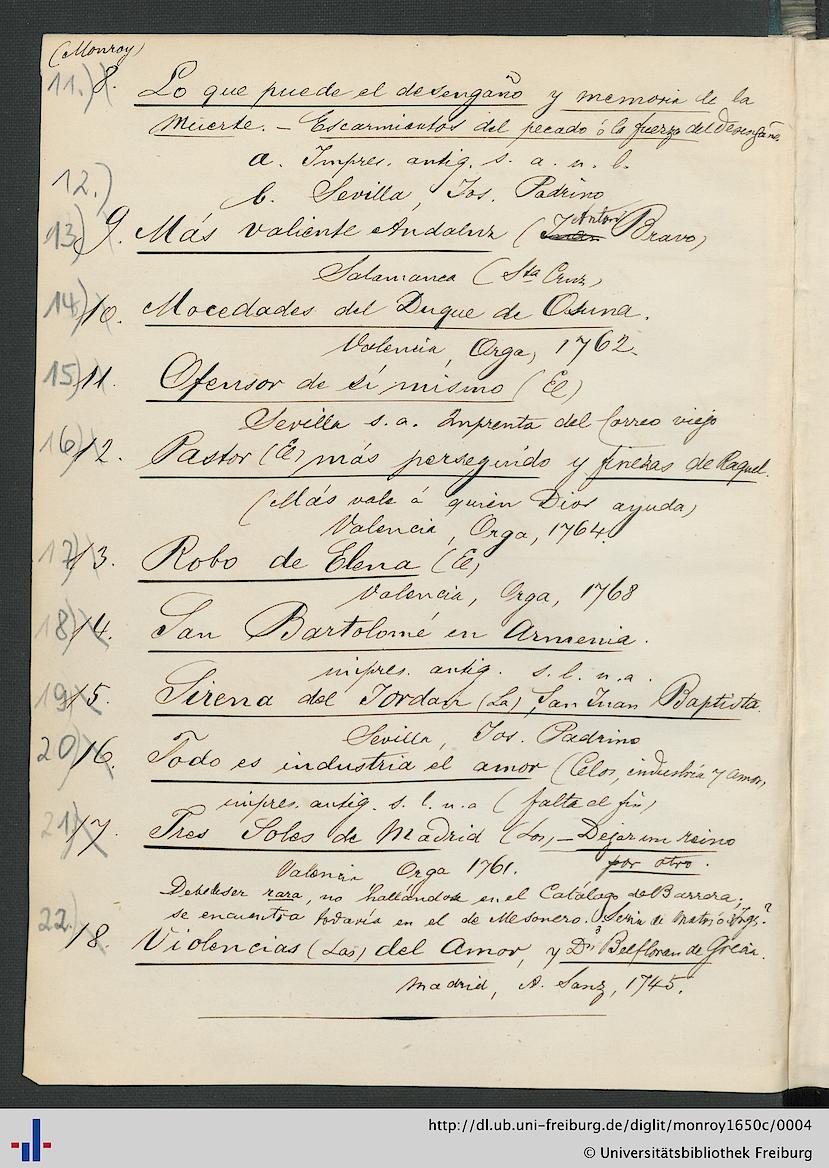 (Monroy)
11.) 8. Lo que puede el desengaño y memoria de la
Muerte. – Escarmientos del pecado ó la fuerza del Desengaño.
a. Impres. antig. s. a. n. l.
12.) b. Sevilla, Jos. Padrino
13) 9. Más valiente Andaluz (Juan Anton Bravo)
Salamanca (Sta Cruz)
14) 10. Mocedades del Duque de Osuna.
Valencia, Orga, 1762.
15) 11. Ofensor de sí mismo (El)
Sevilla s. a. Imprenta del Correo viejo
16) 12. Pastor (El) más perseguido y finezas de Raquel.
(Más vale á quien Dios ayuda)
Valencia, Orga, 1764.
17) 13. Robo de Elena (El)
Valencia, Orga, 1768
18) 14. San Bartolomé en Armenia.
impres. antig. s. l. n. a.
19) 15. Sirena del Jordan (La), San Juan Baptista.
Sevilla, Jos. Padrino
20) 16. Todo es industria el amor (Celos, industria y amor)
impres. antig. s. l. n. a (falta el fin)
21) 17. Tres Soles de Madrid (Los) – Dejar un reino
por otro.
Valencia Orga 1761.
Debe de ser rara, no hallándose en el Catálogo de Barrera;
se encuentra todavía en el de Mesonero. Sería de
22.) 18. Violencias (Las) del Amor, y Dn Belfloran de Grecia.
Madrid, A. Sanz, 1745.
http://dl.ub.uni-freiburg.de/diglit/monroy1650c/0004
© Universitätsbibliothek Freiburg